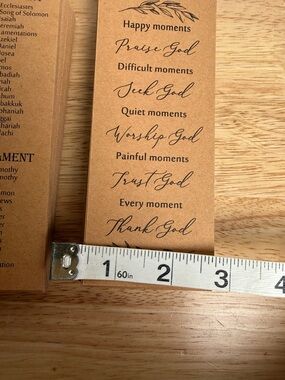 Ecclesiastes
Song of Solomon
Isaiah
Jeremiah
Lamentations
Ezekiel
Daniel
Hosea
Joel
Amos
Obadiah
Jonah
Micah
Nahum
Habakkuk
Zephaniah
Haggai
Zechariah
Malachi
AMENT
Timothy
Timothy
Philemon
Hebrews
Happy moments
Praise God
Difficult moments
Seek God
Quiet moments
Worship God
Painful moments
Trust God
Every moment
Thank God
1 60in 2 3 4